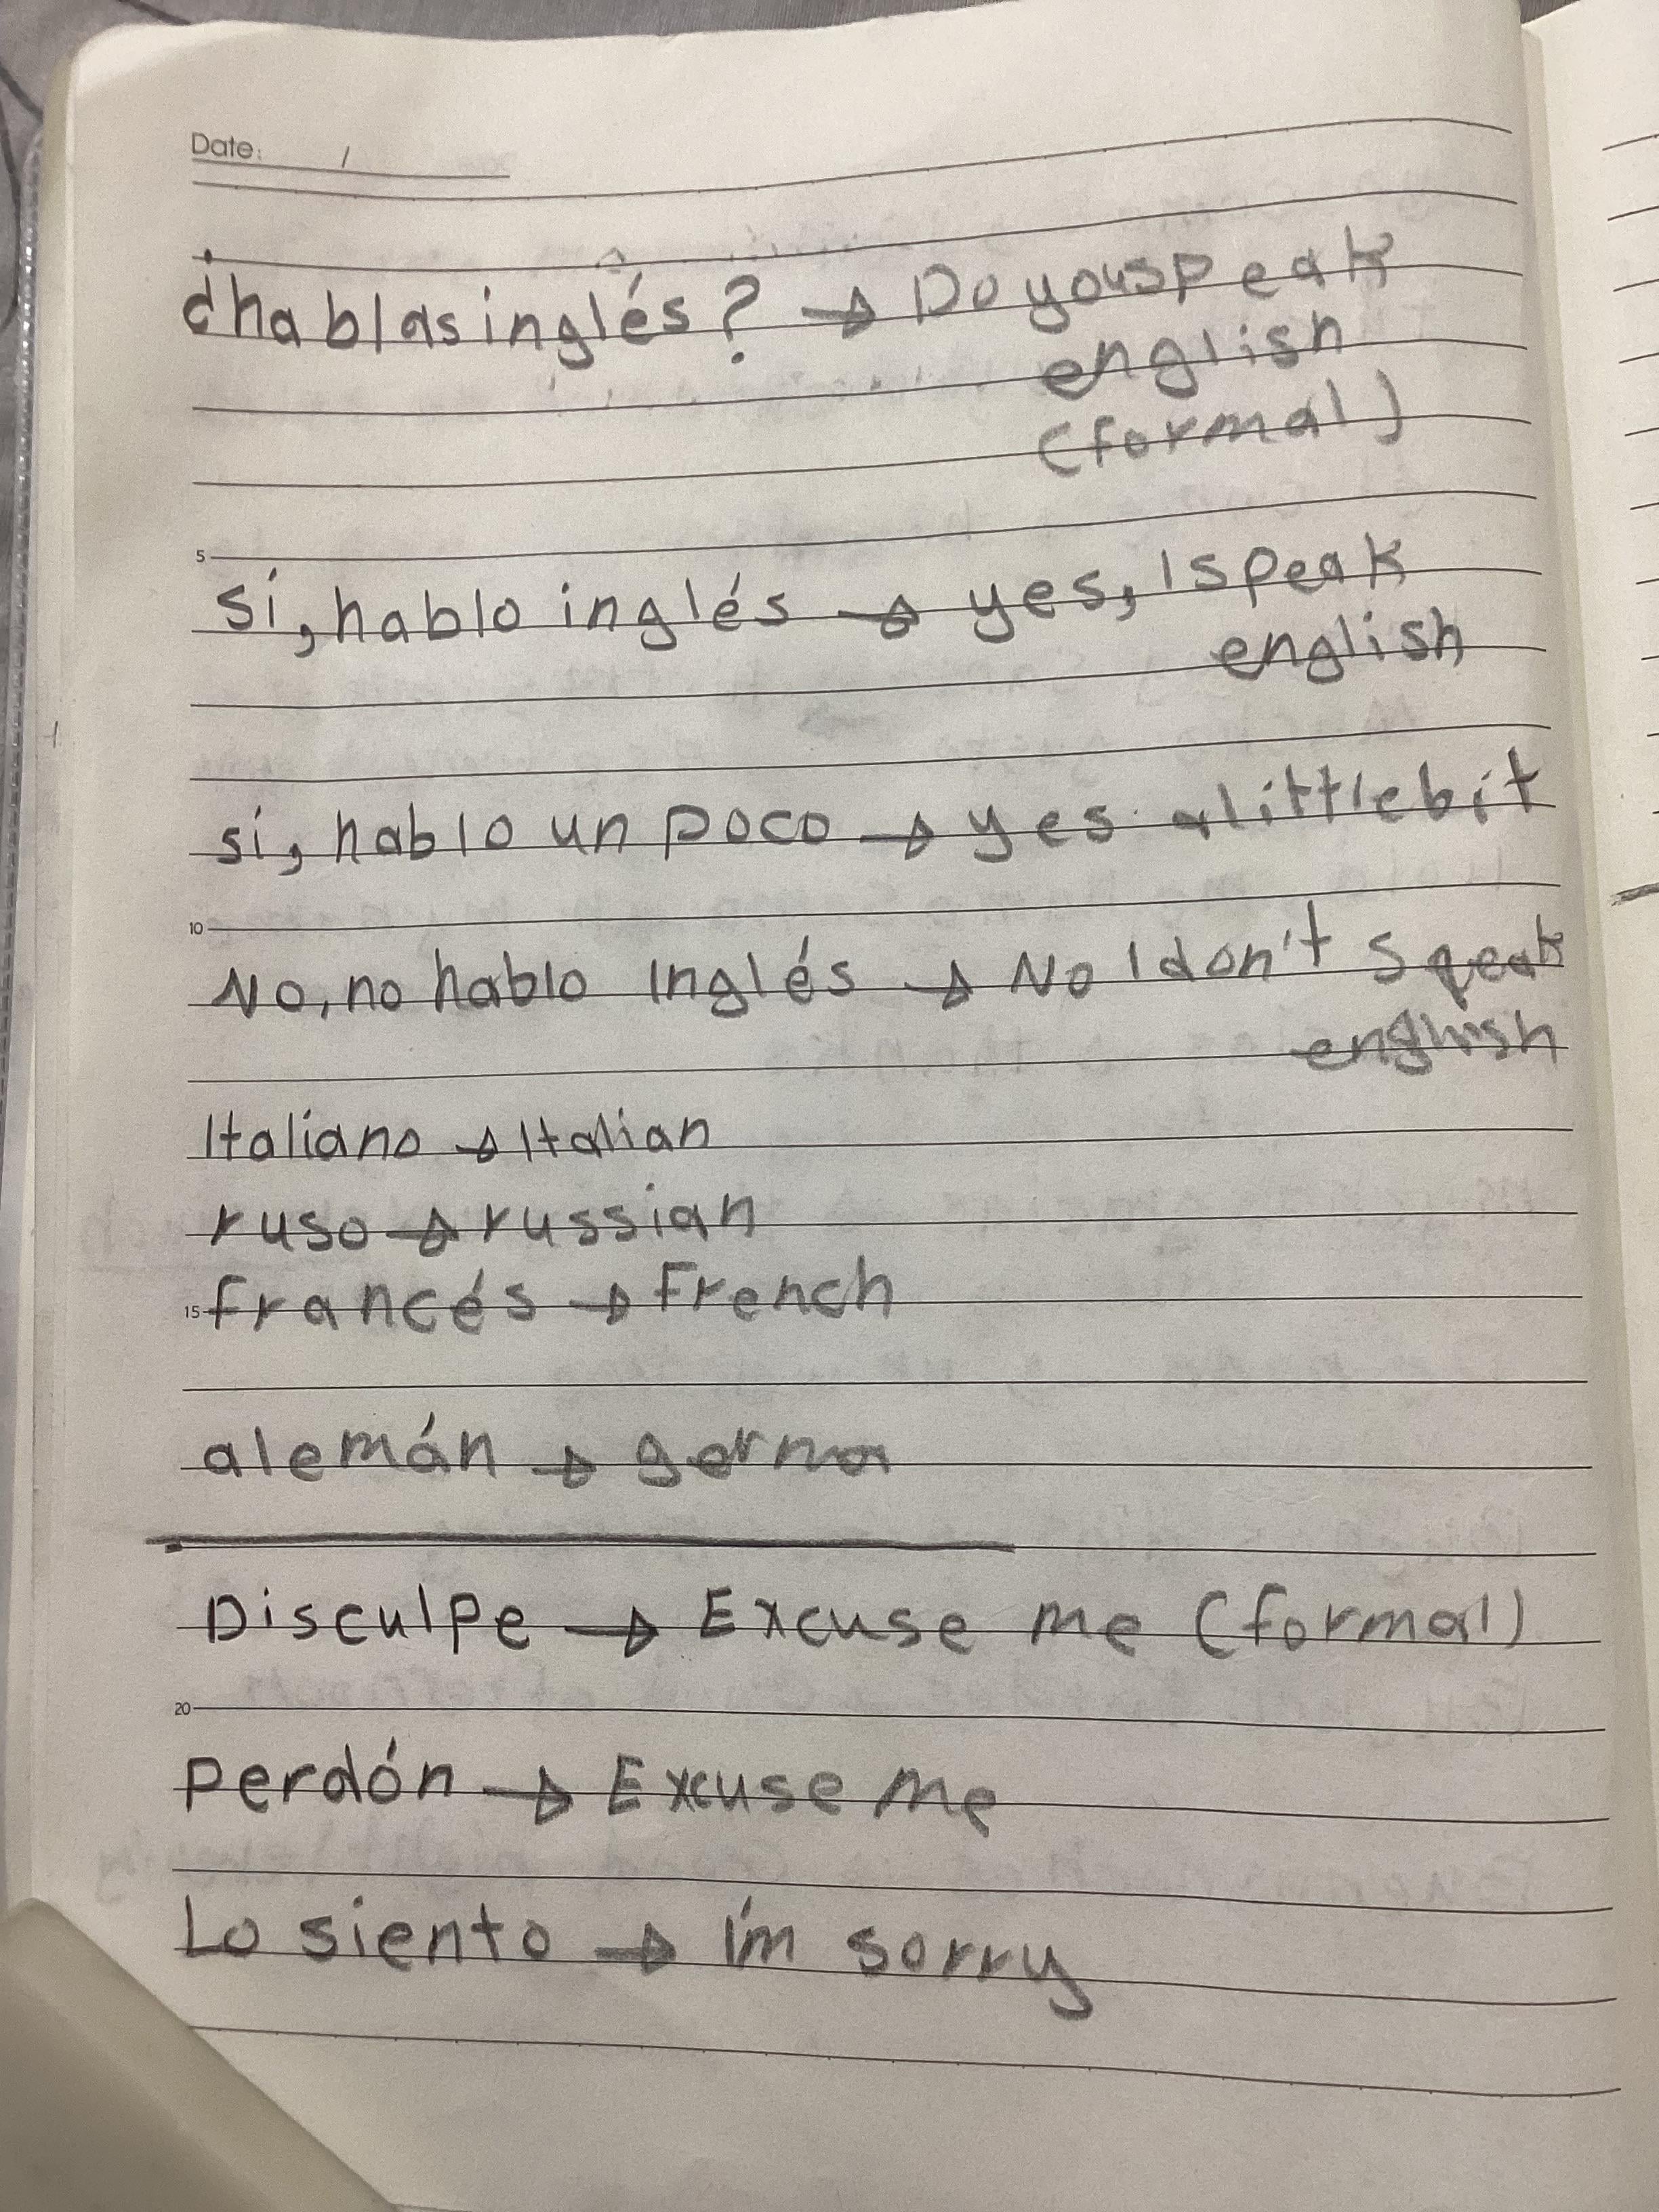 Date: /
¿hablas inglés? → Do you speak
english
(formal)
5
sí, hablo inglés → yes, I speak
english
sí, hablo un poco → yes a little bit
10
No, no hablo Inglés → No I don't speak
english
Italiano → Italian
ruso → russian
15 francés → French
alemán → germa
Disculpe → Excuse me (formal)
20
perdón → Excuse me
Lo siento → I'm sorry